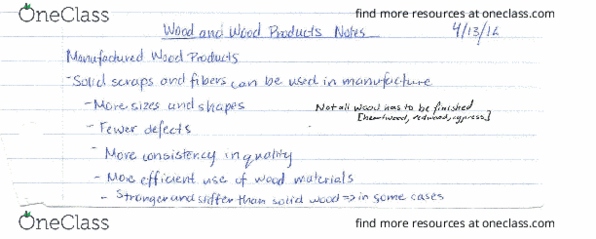 OneClass
find more resources at oneclass.com
Wood and Wood Products Notes
4/13/16
Manufactured Wood Products
- Solid scraps and fibers can be used in manufacture
- More sizes and shapes
Not all wood has to be finished
[heartwood, redwood, cypress]
- Fewer defects
- More consistency in quality
- More efficient use of wood materials
- Stronger and stiffer than solid wood => in some cases
OneClass
find more resources at oneclass.com